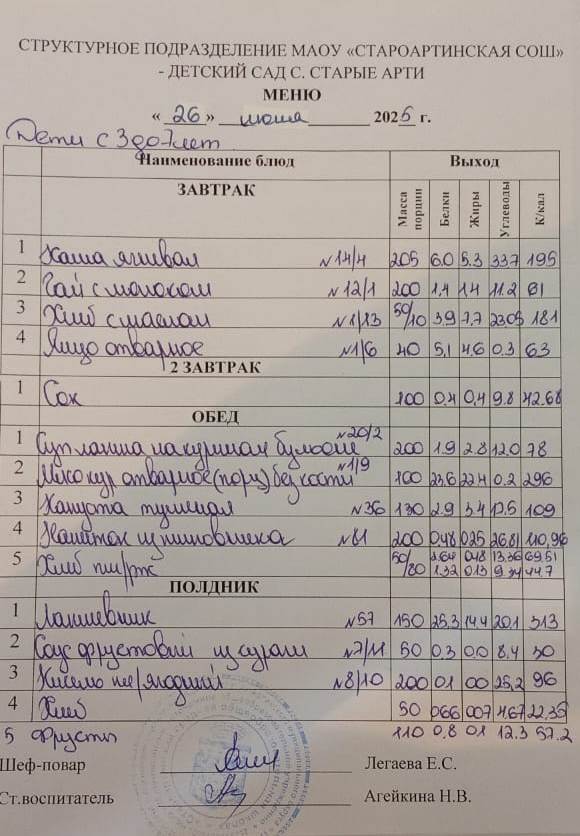 СТРУКТУРНОЕ ПОДРАЗДЕЛЕНИЕ МАОУ «СТАРОАРТИНСКАЯ СОШ»
- ДЕТСКИЙ САД С. СТАРЫЕ АРТИ
МЕНЮ
« 26 » июня 2025 г.
Дети с 3 до 7 лет
Наименование блюд Выход
ЗАВТРАК Масса порции Белки Жиры Углеводы К/кал
1 Каша ячневая №14/4 205 6.0 5.3 33.7 195
2 Чай с молоком №12/1 200 1,4 1.4 11.2 61
3 Хлеб с маслом №1/13 50/10 3,9 7,7 23.05 181
4 Яйцо отварное №1/6 40 5,1 4.6 0.3 63
2 ЗАВТРАК
1 Сок 100 0.4 0,4 9.8 42.68
ОБЕД
1 Суп лапша на курином бульоне №20/2 200 1.9 2.8 12.0 78
2 Мясо кур отварное (порц) без кости №1/9 100 23.6 22.4 0.2 296
3 Капуста тушеная №36 130 2.9 3,4 12.5 109
4 Напиток из шиповника №81 200 0,48 0.25 26.81 110,96
5 Хлеб пш/рж 50/80 2.64 0.48 13.36 69.51
1.32 0.13 9.34 44.7
ПОЛДНИК
1 Лапшевник №57 150 25,3 14,4 20.1 313
2 Соус фруктовый из кураги №7/11 50 0.3 0,0 8,4 30
3 №8/10 200 0.1 00 25,2 96
4 Хлеб 50 0.66 0.07 4.67 22.35
5 Фрукты 110 0,8 0.1 12.3 57.2
Шеф-повар Легаева Е.С.
Ст.воспитатель Агейкина Н.В.